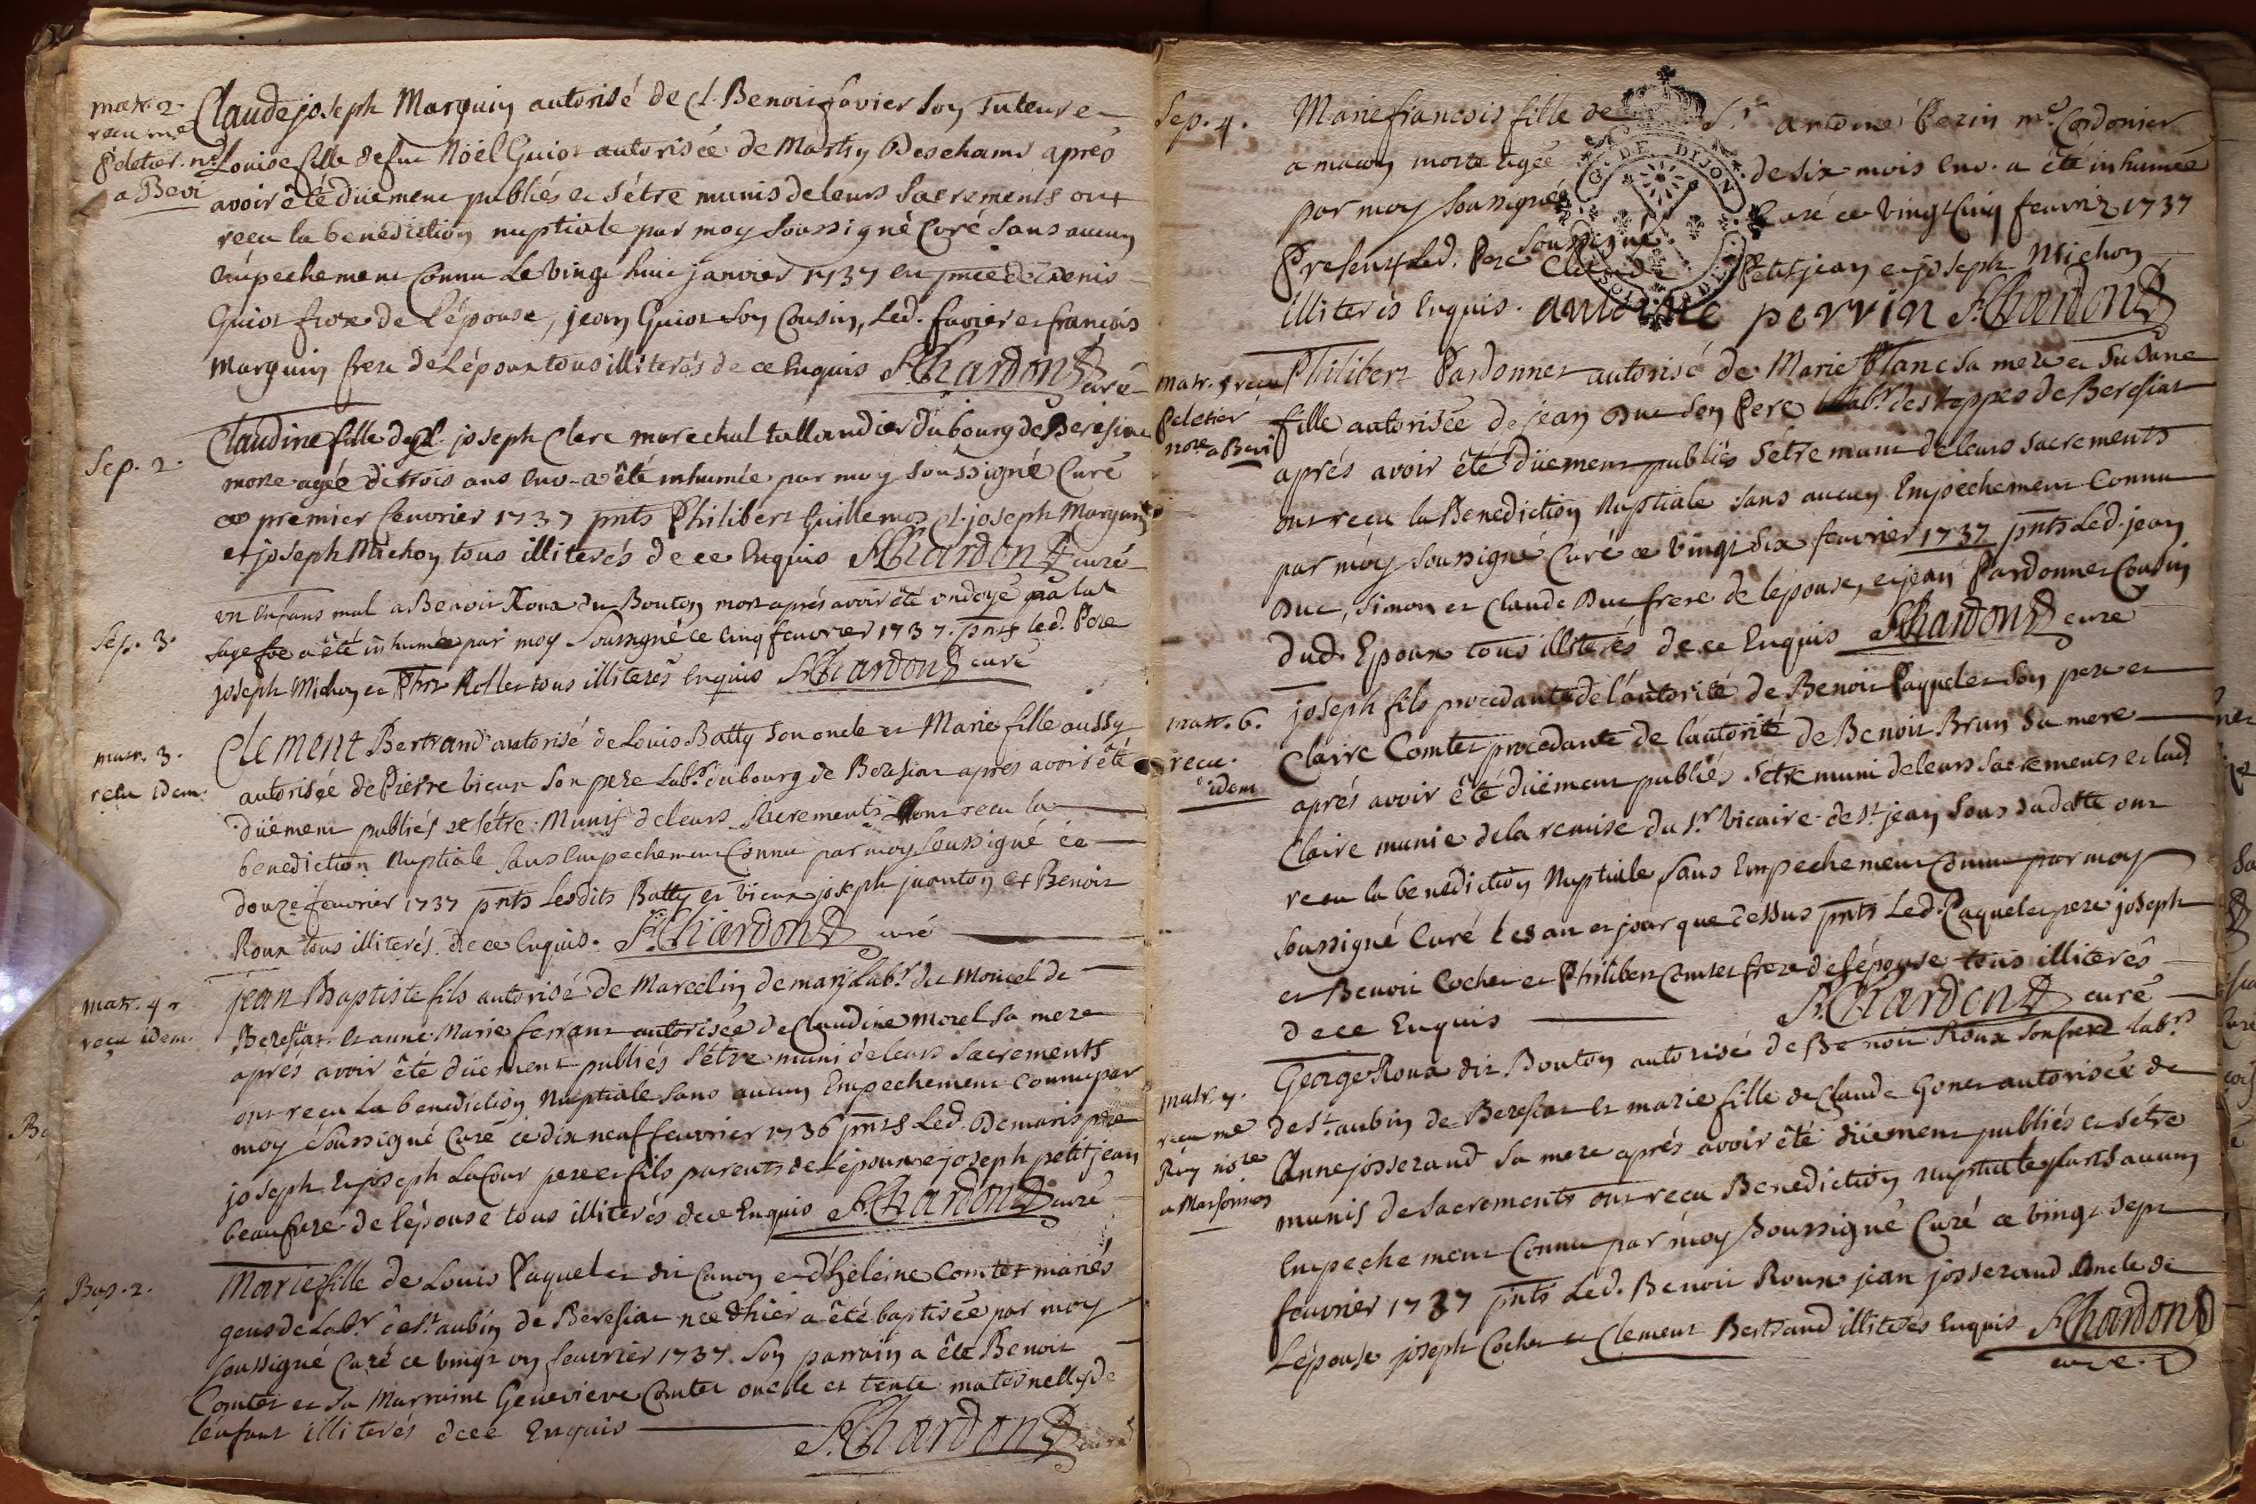 matr. 2.
recu me
Peletier. nre
a Bevi
Claude joseph Marguin autorisé de Cl. Benoit favier son Tuteur et
Louise fille de feu Nöel Guiot autorisée de Deschams aprés
avoir été düement publiés et s'étre munis de leurs Sacrements ont
recu la benediction nuptiale par moy Soussigné Curé sans aucun
empechement Connu Le vingt huit janvier 1737 en pnce de Denis
Guiot frere de l'épouse, jean Guiot son Cousin, Led. favier et francois
Marguin frere de L'époux tous illiterés de ce Enquis Chardon curé
Sep. 2.
Claudine fille de Cl. joseph Clerc marechal tallandier du bourg de Beresiat
morte agée de trois ans env. a été inhumée par moy soussigné Curé
ce premier feuvrier 1737 pnts Philibert Guillemot Cl. joseph Marguin
et joseph Michon tous illiterés de ce Enquis Chardon curé
Sep. 3.
un Enfant mal a Benoit Roux du Bouton mort aprés avoir été ondoyé par la
sage fee a été inhumée par moy Soussigné ce Cinq feuvrier 1737. pnts led. Pere
joseph Michon et Rollet tous illiterés Enquis Chardon curé
matr. 3.
recu idem.
Clement Bertrand autorisé de Louis Batty son oncle et Marie fille aussy
autorisée de Pierre vieux son pere Labr. du bourg de Beresiat apres avoir été
düement publiés et s'étre Munis de leurs Sacrements ont recu la
benediction Nuptiale sans Empechement Connu par moy Soussigné ce
douze feuvrier 1737 pnts Lesdits Batty et vieux joseph juanton et Benoit
Roux tous illiterés de ce Enquis. Chardon curé
matr. 4.
recu idem.
jean Baptiste fils autorisé de Marcelin demary Labr. du Moncel de
Beresiat. Et anne Marie ferrant autorisée de Claudine Morel sa mere
apres avoir été düement publiés S'étre muni de leurs Sacrements
ont recu La benediction Nuptiale sans aucun Empechement Connu par
moy Soussigné Curé ce dix neuf feuvrier 1736 pnts Led. Demaris pere
joseph et joseph Lacour pere et fils parents de L'époux et joseph petitjean
beaufrere de l'épouse tous illiterés de ce Enquis Chardon curé
Bap. 2.
Marie fille de Louis Paquelet dit Canon et d'heleine Comtet mariés
gens de Labr de st aubin de Beresiat née d'hier a été baptisée par moy
soussigné Curé ce vingt un feuvrier 1737. Son parrain a été Benoit
Comtet et sa Marraine Genevieve Comtet oncle et tente maternells de
l'enfant illiterés de ce Enquis Chardon curé
Sep. 4.
Marie francois fille de Sr antoine Perin me Cordonier
a macon morte agée de six mois env. a été inhumée
par moy soussigné Curé ce vingt Cinq feuvrier 1737
Present Led. Pere soussigné Claude Petitjean et joseph Michon
illiterés Enquis. antoine perrin Chardon
matr. 5 recu
Peletier
nore a Bevi
Philibert Pardonnet autorisé de Marie Blanc sa mere et Susane
fille autorisée de jean Duc son Pere Labr. des teppes de Beresiat
aprés avoir été düement publiés s'étre muni de leurs sacrements
ont recu la Benediction Nuptiale sans aucun Empéchement Connu
par moy soussigné Curé ce vingt six feuvrier 1737 pnts Led. jean
Duc, Simon et Claude Duc frere de l'épouse, et jean Pardonnet Cousin
dud. Epoux tous illiterés de ce Enquis Chardon curé
matr. 6.
recu.
idem
joseph fils procedant de l'autorité de Benoit Paquelet son pere et
Claire Comtet procedante de l'autorité de Benoit Brun sa mere
aprés avoir été düement publiés s'étre muni de leurs sacrements et lad
Claire munie de la remise du sr. vicaire de st jean sous sa datte ont
recu la benediction Nuptiale sans Empechement Connu par moy
soussigné Curé Les an et jour que dessus pnts Led. Paquelet pere joseph
et Benoit Cochet et Philibert Comtet frere de l'épouse tous illiterés
de ce Enquis Chardon curé
matr. 7.
recu me
nore
a Marsonnos
George Roux dit Bouton autorisé de Benoit Roux son frere Labr.
de st. aubin de Beresiat et marie fille de Claude Gonet autorisée de
Anne josserand sa mere aprés avoir été düement publiés et s'étre
munis de Sacrements ont recu Benediction nuptiale sans aucun
Empechement Connu par moy Soussigné Curé ce vingt sept
feuvrier 1737 pnts Led. Benoit Roux jean josserand oncle de
L'épouse joseph Cochet et Clement Bertrand illiterés Enquis Chardon
curé.